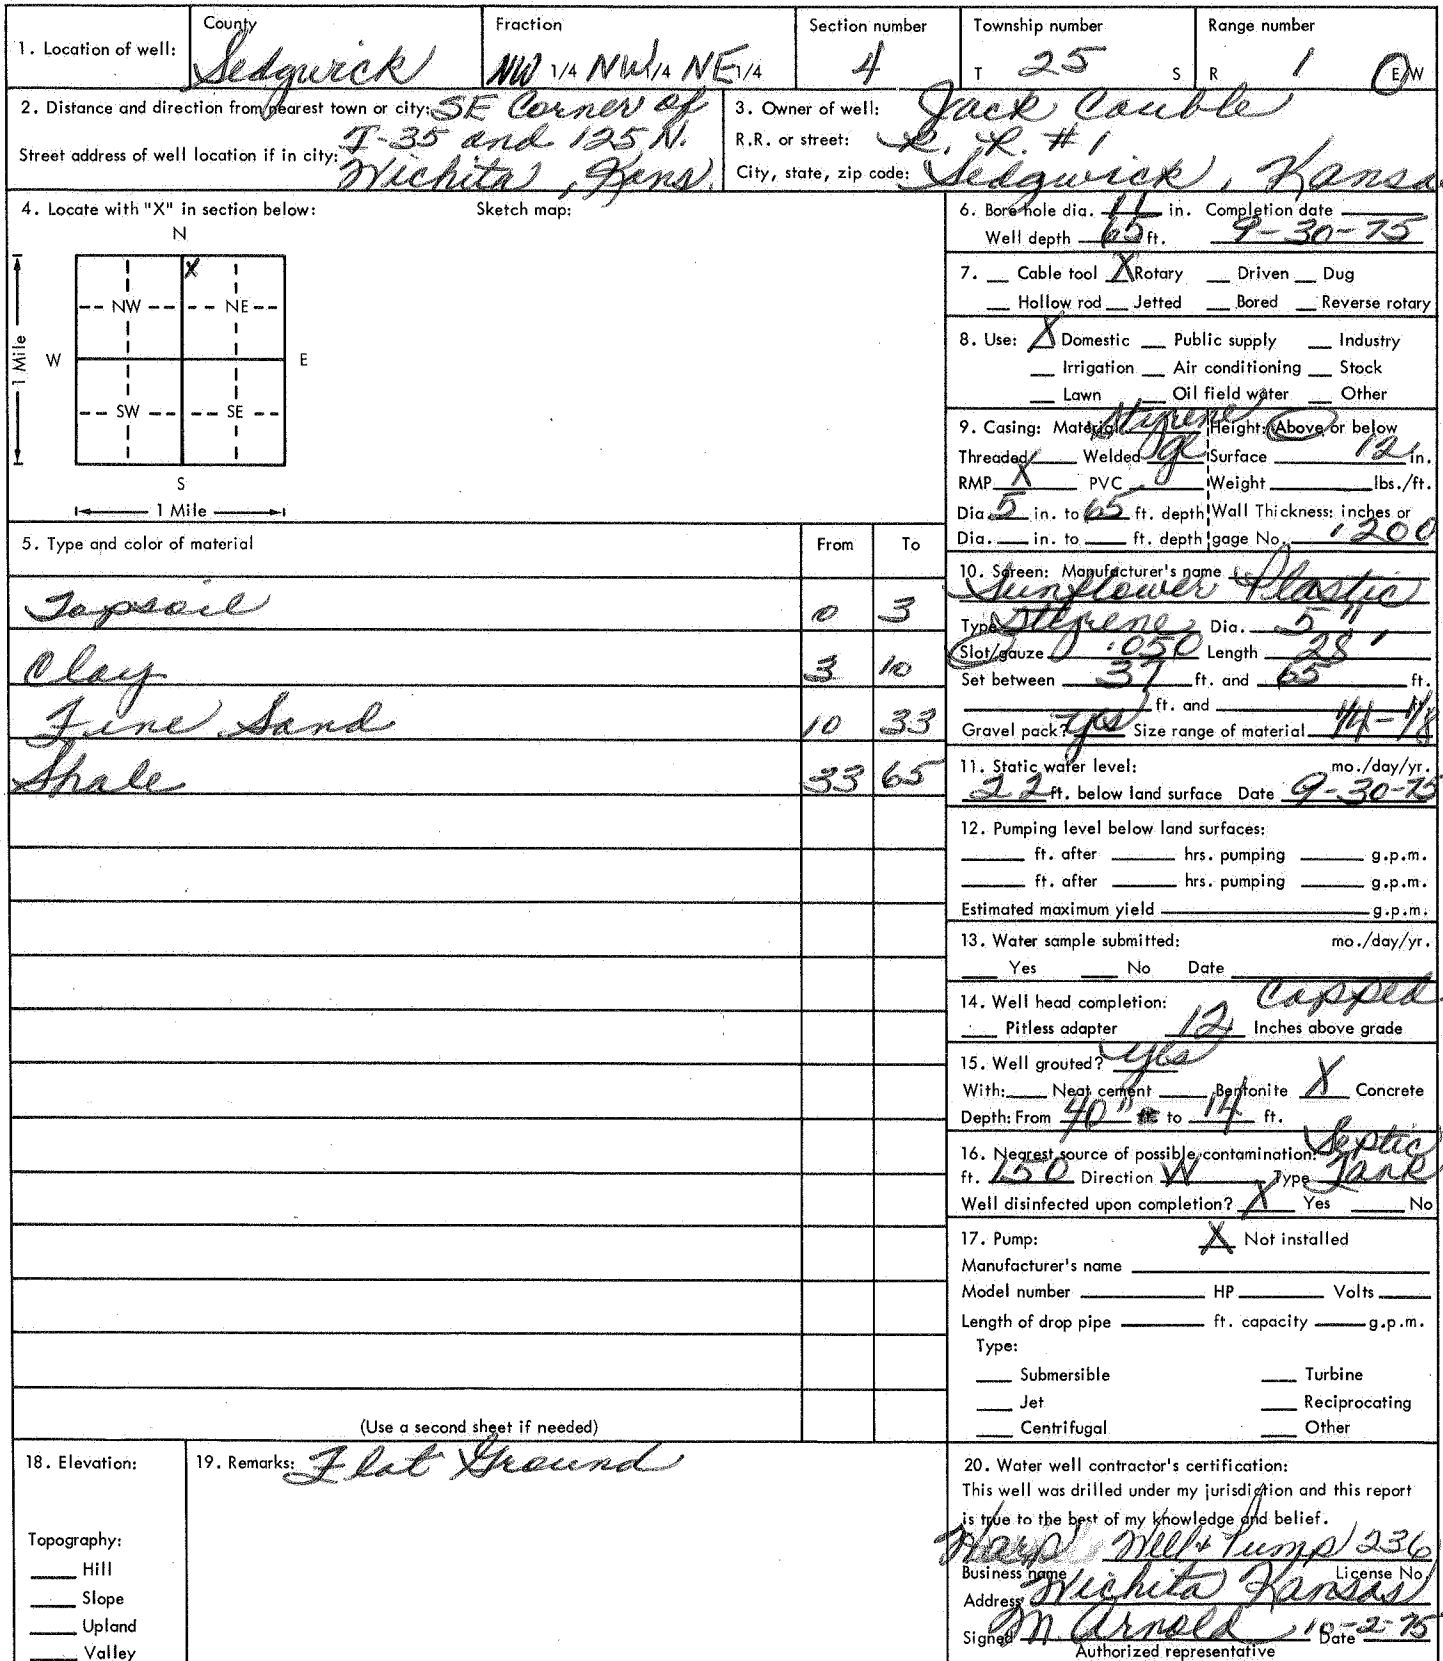 1. Location of well: County Sedgwick Fraction NW 1/4 NW 1/4 NE 1/4 Section number 4 Township number T 25 S Range number R 1 E/W
2. Distance and direction from nearest town or city: SE Corner of
I-35 and 125 N.
Street address of well location if in city: Wichita, Kans.
3. Owner of well: Jack Couble
R.R. or street: R. R. #1
City, state, zip code: Sedgwick, Kansa
4. Locate with "X" in section below: Sketch map:
N
X
NW NE
W E
1 Mile
SW SE
S
1 Mile
5. Type and color of material From To
Topsoil 0 3
Clay 3 10
Fine Sand 10 33
Shale 33 65
(Use a second sheet if needed)
6. Bore hole dia. 11 in. Completion date
Well depth 65 ft. 9-30-75
7. Cable tool X Rotary Driven Dug
Hollow rod Jetted Bored Reverse rotary
8. Use: X Domestic Public supply Industry
Irrigation Air conditioning Stock
Lawn Oil field water Other
9. Casing: Material Styrene Height: Above or below
Threaded Welded Surface 12 in.
RMP X PVC Weight lbs./ft.
Dia. 5 in. to 65 ft. depth Wall Thickness: inches or
Dia. in. to ft. depth gage No. .200
10. Screen: Manufacturer's name
Sunflower Plastic
Type Styrene Dia. 5"
Slot/gauze .050 Length 28'
Set between 37 ft. and 65 ft.
ft. and ft.
Gravel pack? yes Size range of material 1/4-1/8
11. Static water level: mo./day/yr.
22 ft. below land surface Date 9-30-75
12. Pumping level below land surfaces:
ft. after hrs. pumping g.p.m.
ft. after hrs. pumping g.p.m.
Estimated maximum yield g.p.m.
13. Water sample submitted: mo./day/yr.
Yes No Date
14. Well head completion: Capped
Pitless adapter 12 Inches above grade
15. Well grouted? yes
With: Neat cement Bentonite X Concrete
Depth: From 40" to 14 ft.
16. Nearest source of possible contamination: Septic
ft. 150 Direction W Type Tank
Well disinfected upon completion? X Yes No
17. Pump: X Not installed
Manufacturer's name
Model number HP Volts
Length of drop pipe ft. capacity g.p.m.
Type:
Submersible Turbine
Jet Reciprocating
Centrifugal Other
18. Elevation:
Topography:
Hill
Slope
Upland
Valley
19. Remarks: Flat Ground
20. Water well contractor's certification:
This well was drilled under my jurisdiction and this report
is true to the best of my knowledge and belief.
Harp Well & Pump 236
Business name License No.
Address Wichita Kansas
Signed M. Arnold Date 10-2-75
Authorized representative